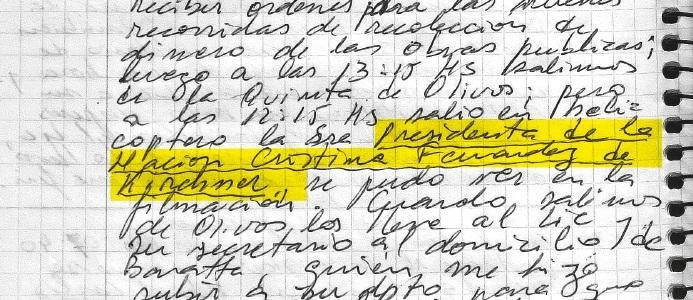 recibir ordenes para las nuevas
recorridas de recoleccion de
dinero de las obras publicas;
luego a las 13:15 Hs salimos
de la Quinta de Olivos; pero
a las 12:15 Hs salio en heli-
coptero la Sra Presidenta de la
Nacion Cristina Fernandez de
Kirchner, se pudo ver en la
filmación. Cuando salimos
de Olivos los lleve al Lic y
su secretario al domicilio de
Baratta, quien me hizo
subir a su dpto para que